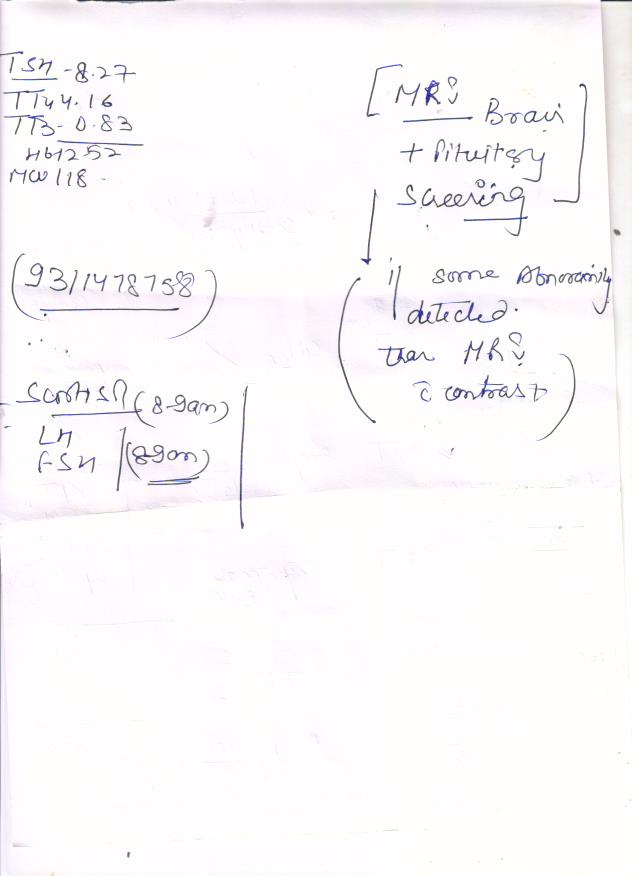 TSH - 8.27
TT4 4.16
TT3 - 0.83
MCV 118 -
(9311478758)
S cortisol (8-9am)
LH
FSH (8-9am)
[MRI Brain
+ Pituitary
Screening]
if some Abnormality
detected.
then MRI
c̄ contrast